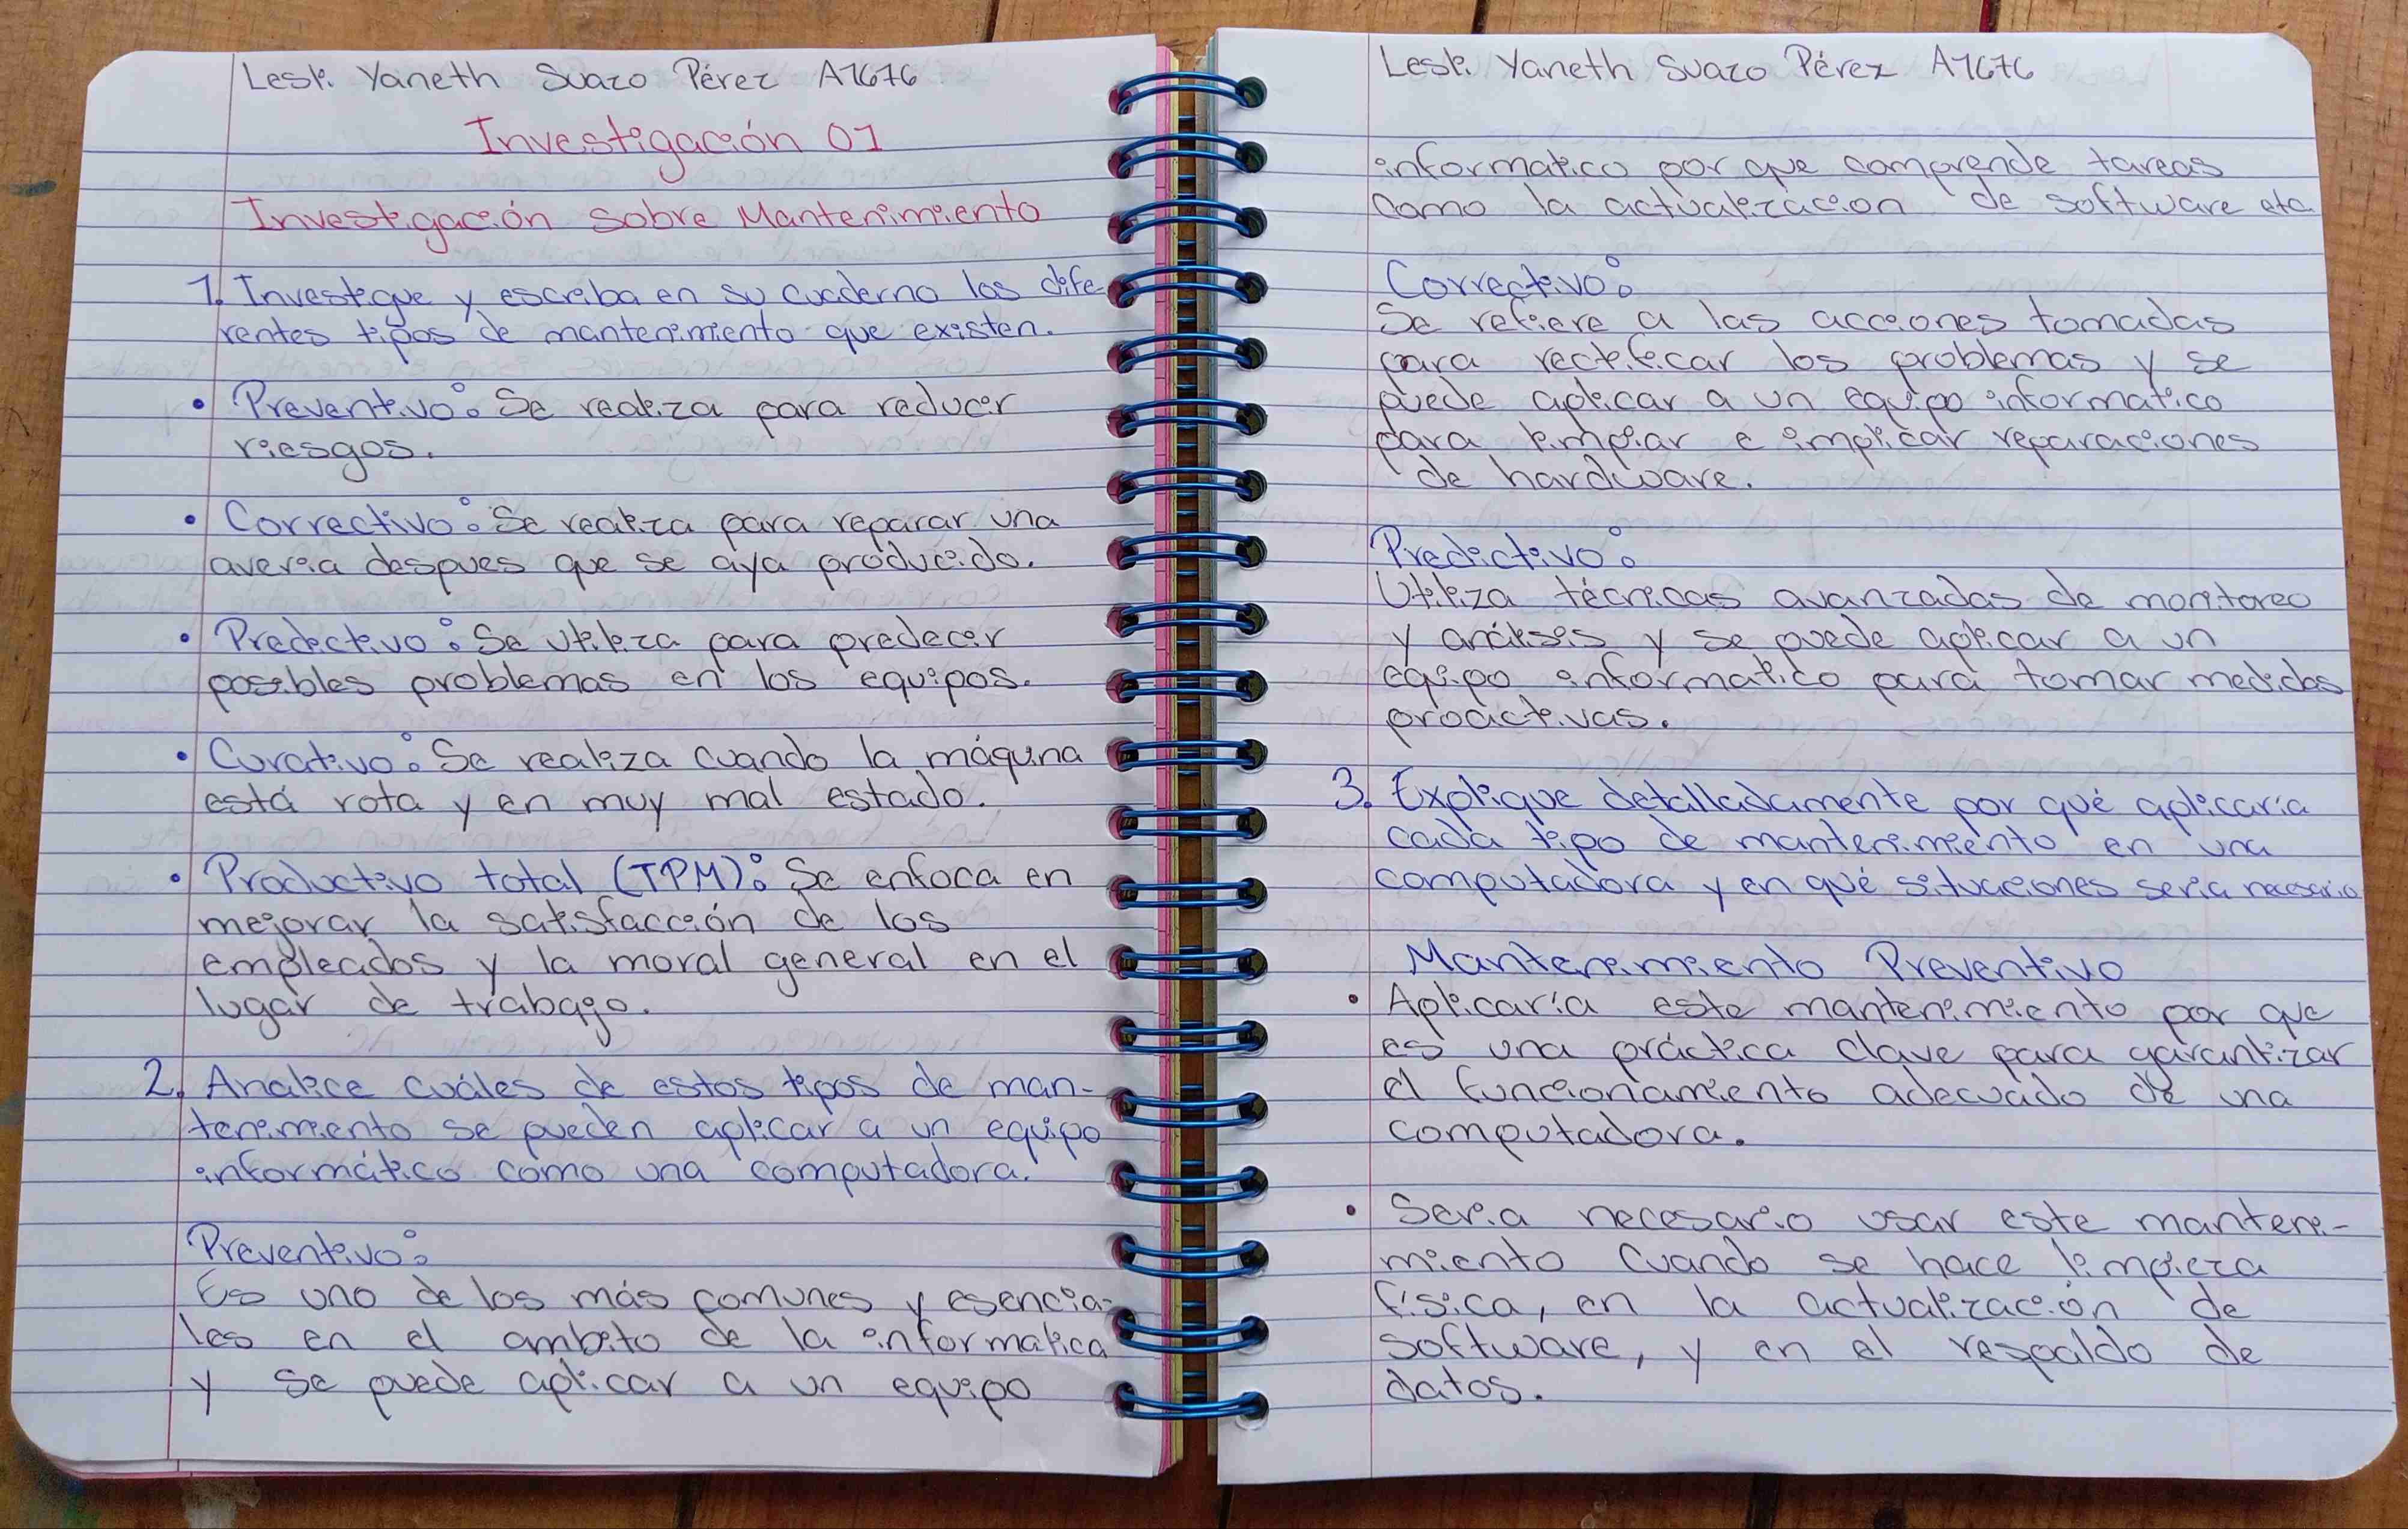 Lesli Yaneth Suazo Pérez A1676
Investigación 01
Investigación sobre Mantenimiento
1. Investigue y escriba en su cuaderno los dife-
rentes tipos de mantenimiento que existen.
• Preventivo: Se realiza para reducir
riesgos.
• Correctivo: Se realiza para reparar una
averia despues que se aya producido.
• Predictivo: Se utiliza para predecir
posibles problemas en los equipos.
• Curativo: Se realiza cuando la máquina
está rota y en muy mal estado.
• Productivo total (TPM): Se enfoca en
mejorar la satisfacción de los
empleados y la moral general en el
lugar de trabajo.
2. Analice cuáles de estos tipos de man-
tenimiento se pueden aplicar a un equipo
informático como una computadora.
Preventivo:
Es uno de los más comunes y esencia-
les en el ambito de la informatica
y se puede aplicar a un equipo
Lesli Yaneth Suazo Pérez A1676
informatico por que comprende tareas
como la actualizacion de software etc.
Correctivo:
Se refiere a las acciones tomadas
para rectificar los problemas y se
puede aplicar a un equipo informatico
para limpiar e implicar reparaciones
de hardware.
Predictivo:
Utiliza técnicas avanzadas de monitoreo
y análisis y se puede aplicar a un
equipo informatico para tomar medidas
proactivas.
3. Explique detalladamente por qué aplicaría
cada tipo de mantenimiento en una
computadora y en qué situaciones seria necesario
Mantenimiento Preventivo
• Aplicaría este mantenimiento por que
es una práctica clave para garantizar
el funcionamiento adecuado de una
computadora.
• Seria necesario usar este manteni-
miento cuando se hace limpieza
física, en la actualización de
software, y en el respaldo de
datos.